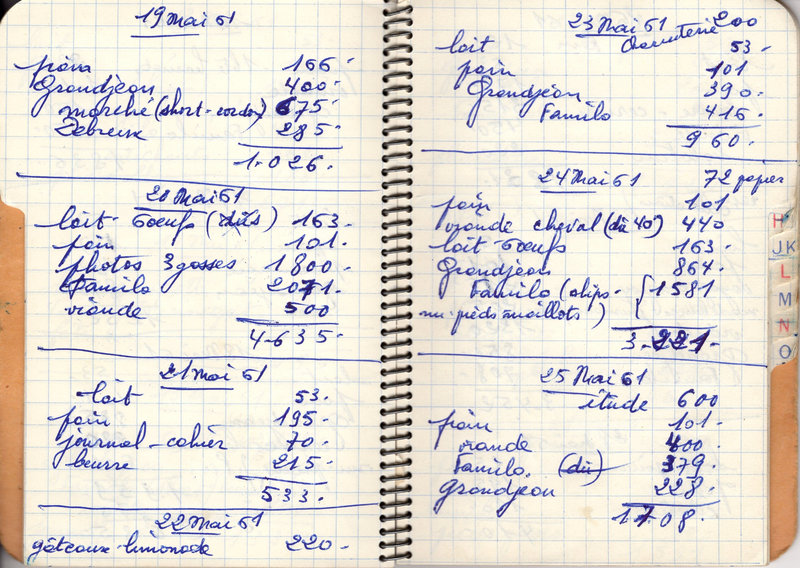 19 Mai 61
pain 166
Grandjean 400
marché (short-cordon) 675
Lebreux 285
1.026
20 Mai 61
lait - 6 oeufs (dûs) 163
pain 101
photos 3 gosses 1800
Familo 2071
viande 500
4.635
21 Mai 61
lait 53
pain 195
journal - cahier 70
beurre 215
533
22 Mai 61
gâteaux - limonade 220
23 Mai 61
charcuterie 200
lait 53
pain 101
Grandjean 390
Familo 416
960
24 Mai 61
72 papier
pain 101
viande cheval (dû 40) 440
lait 6 oeufs 163
Grandjean 864
Familo (slips- 1581
nu-pieds maillots)
3.221
25 Mai 61
étude 600
pain 101
viande 400
Familo (dû) 379
Grandjean 228
1708
H
JK
L
M
N
O